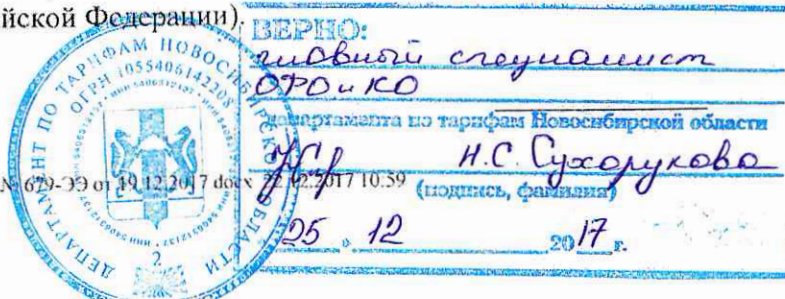 йской Федерации).
ВЕРНО:
главный специалист
ОРОиКО
департамента по тарифам Новосибирской области
Н.С. Сухорукова
(подпись, фамилия)
25 . 12 2017 г.
№ 679-ЭЭ от 19.12.2017 docx 22.12.2017 10:59
ДЕПАРТАМЕНТ ПО ТАРИФАМ НОВОСИБИРСКОЙ ОБЛАСТИ
ОГРН 1055406142208
2